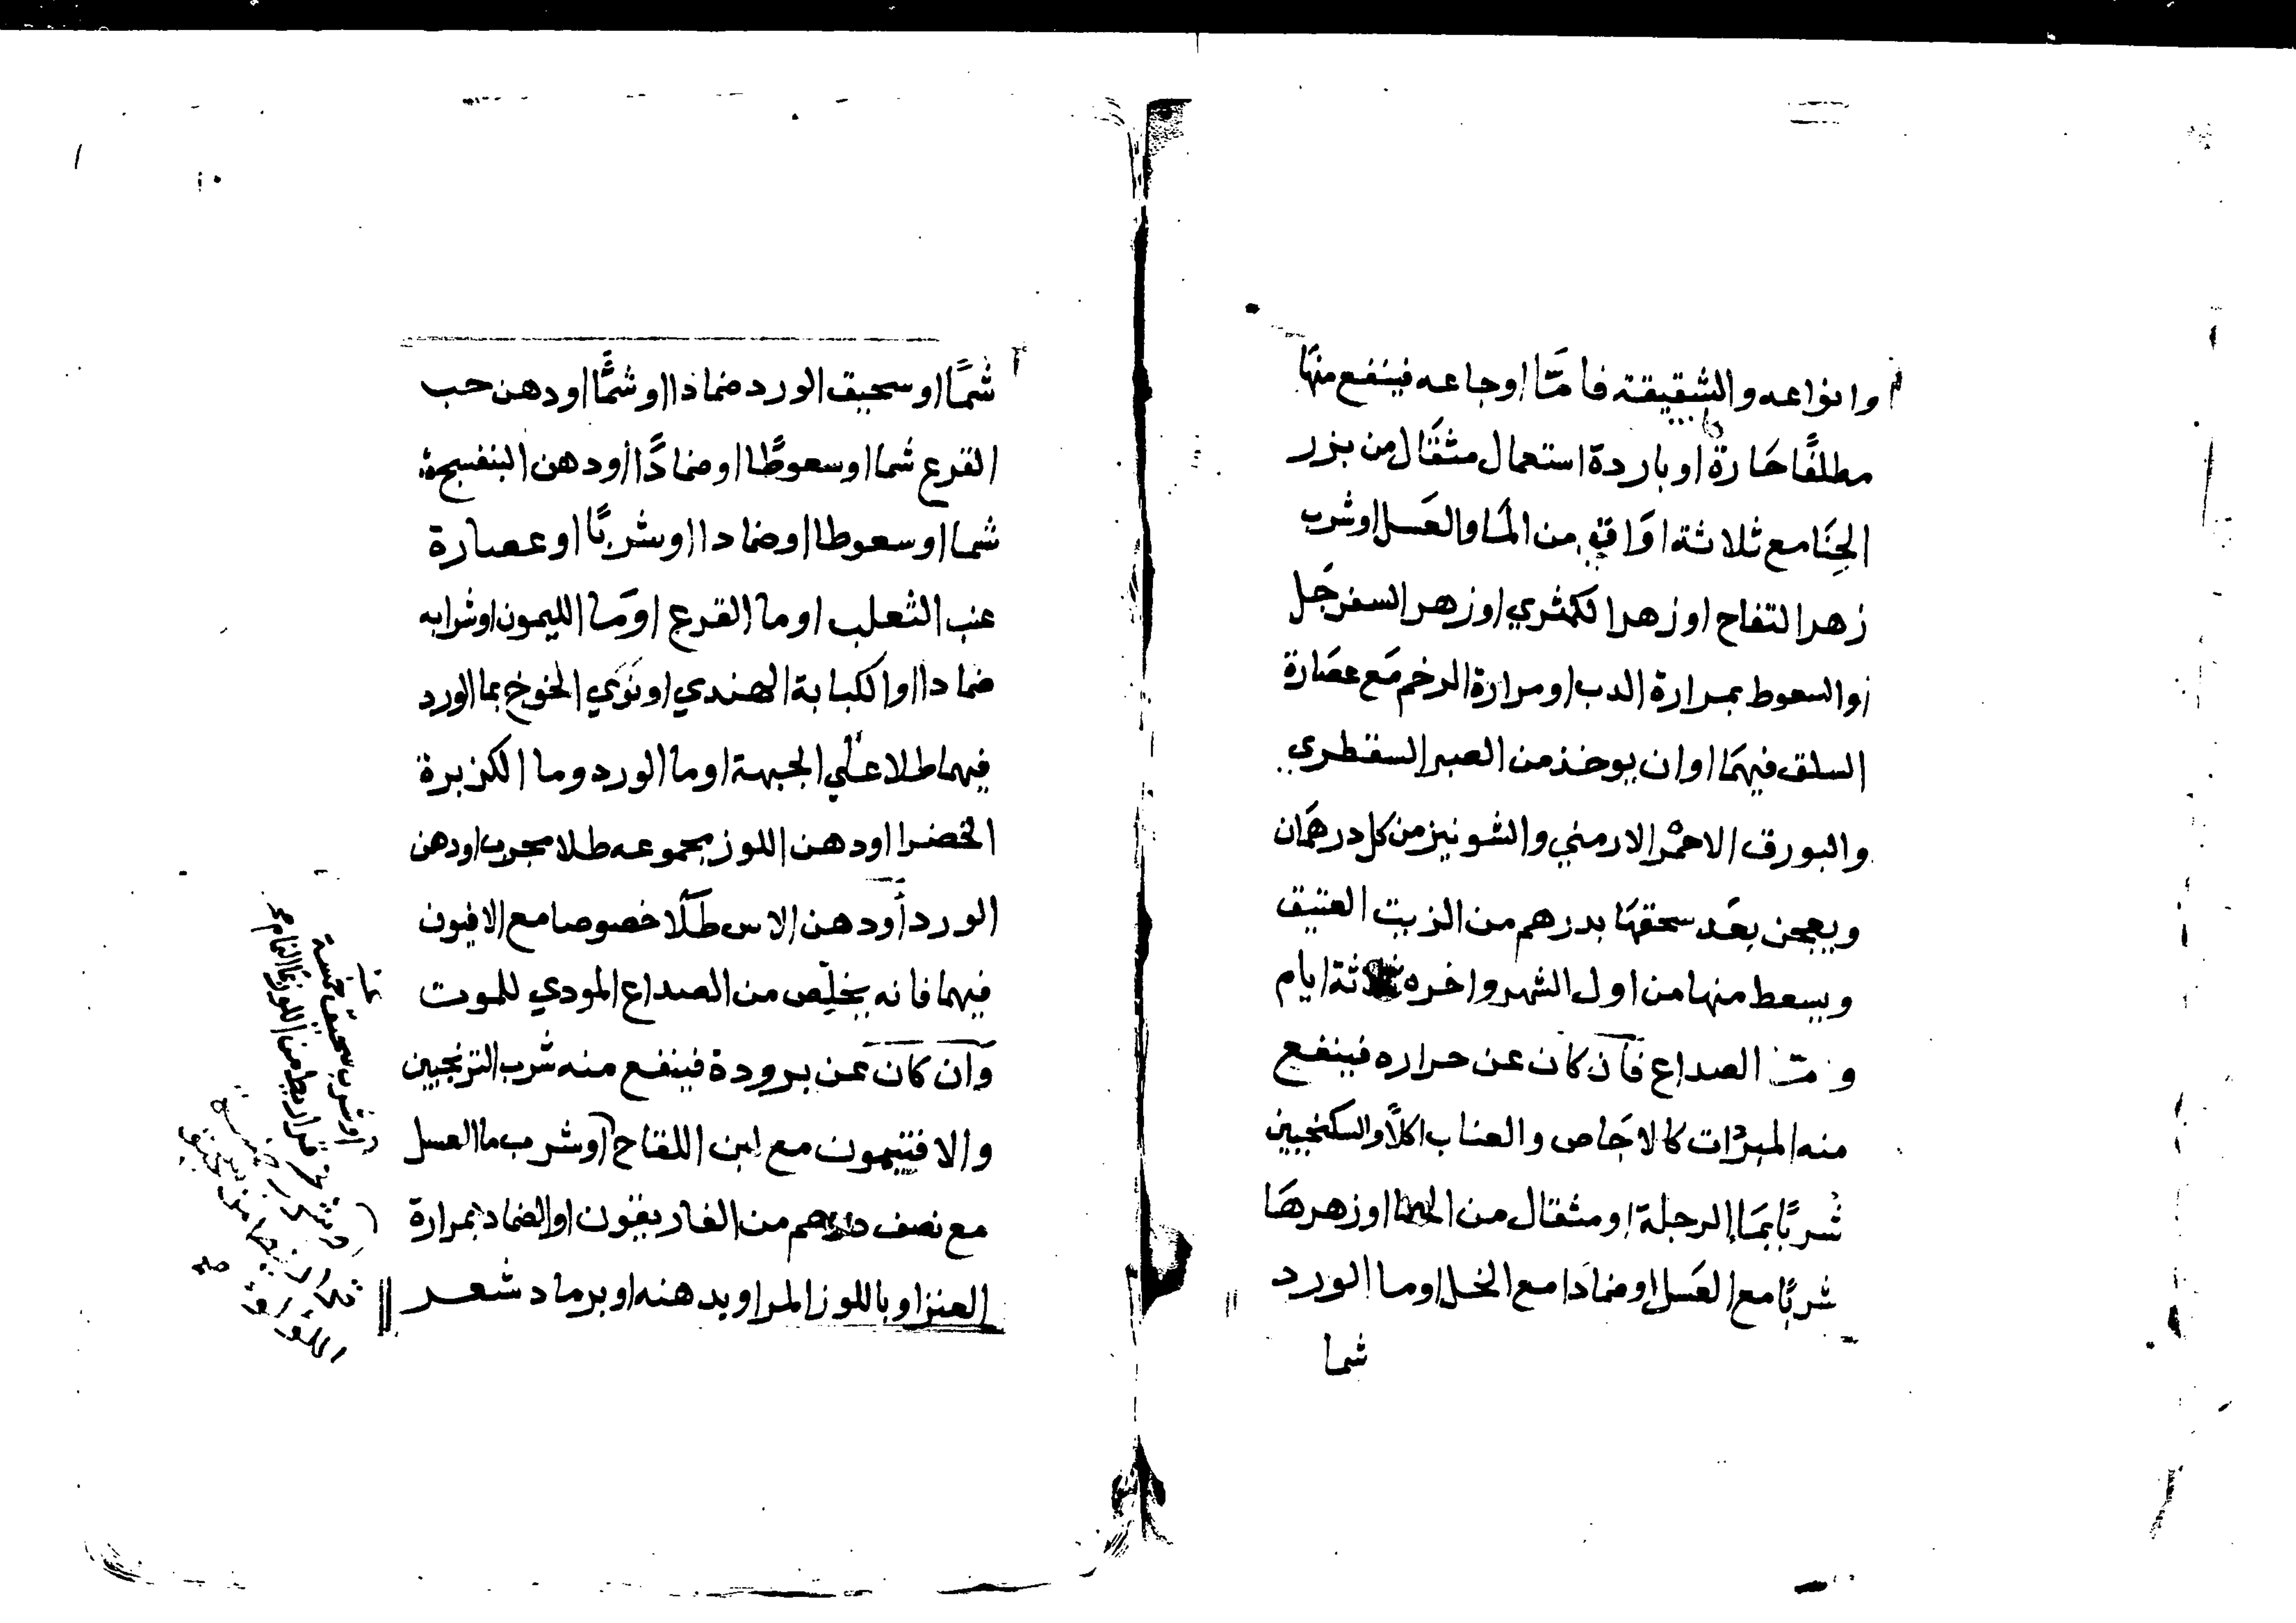 وانواعه والشقيقة فامّا اوجاعه فينفع منها
مطلقًا حَارة او باردة استعمال مثقَال من بزر
الحِنَا مع ثلاثة اوَاقٍ من المَا والعَسل او شرب
زهر التفاح او زهر الكمثري او زهر السفرجَل
او السعوط بمرارة الدب او مرارة الرخم مَع عصَارة
السلق فيهمَا او ان يوخذ من الصبر السقطري
والبورق الاحمْر الارمني والشونيز من كل درهمَان
ويعجن بعَد سحقهَا بدرهم من الزيت العتيق
ويسعط منها من اول الشهر واخره ثلاثة ايام
الصداع فان كان عن حراره فينفع
منه المبرّدات كالاجَاص والعناب اكلاً والسكنجبين
شربًا بمَا الرجلة او مثقال من الحنا او زهرهَا
شربًا مع العَسل او ضمادَا مع الخل او ما الورد
شما
شمًّا او سحيق الورد ضمادا او شمًّا او دهن حب
القرع شما او سعوطًا او ضمادًا او دهن البنفسج
شما او سعوطا او ضمادا او شربًا او عصارة
عنب الثعلب او ما القرع او مَا الليمون او شرابه
ضمادا او الكبابة الهندي او نوَي الخوخ بما الورد
فيهما طلا علي الجبهة او ما الورد وما الكزبرة
الخضرا او دهن اللوز بمجموعه طلا مجرب او دهن
الورد أو دهن الاس طلًا خصوصا مع الافيون
فيهما فانه يخلِّص من الصداع المودي للموت
وان كان عن برودة فينفع منه شرب الترنجبين
والافتيمون مع لبن اللقاح او شرب ما العسل
مع نصف درهم من الغاريقون او الضماد بمرارة
العنز او باللوز المر او بدهنه او برماد شعر
او شرب سحيق خمسة